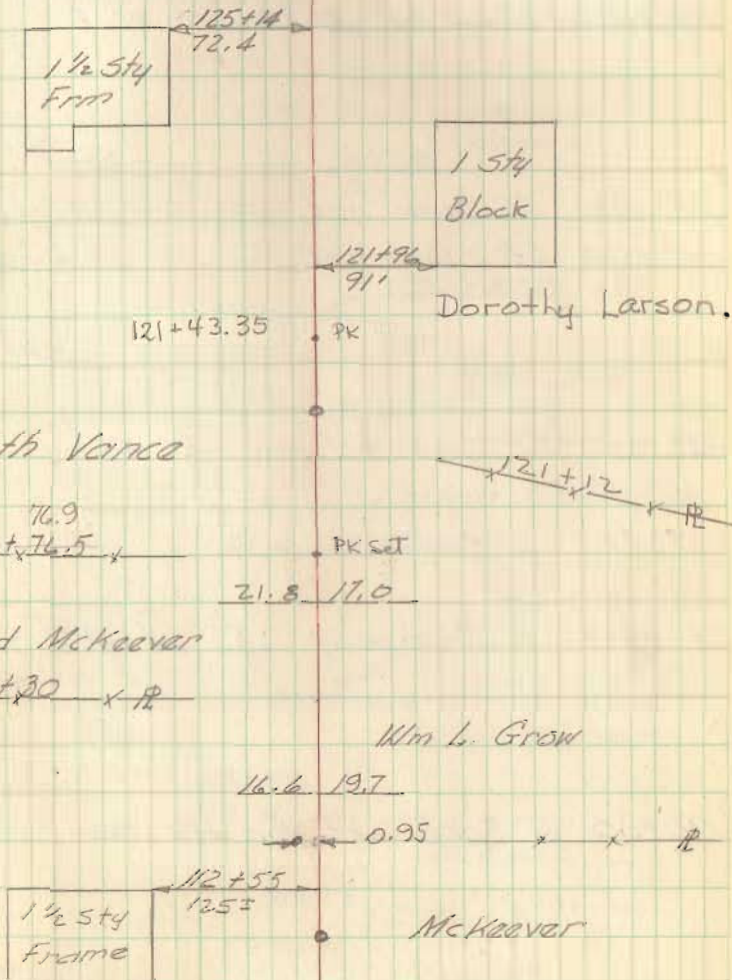 125+14
72.4
1 1/2 Sty
Frm
1 Sty
Block
121+96
91'
Dorothy Larson.
121+43.35
PK
th Vance
121+12
PL
76.9
+76.5
PK set
21.8 17.0
d McKeever
+30
PL
Wm L. Grow
16.6 19.7
0.95
PL
112+55
125±
1 1/2 Sty
Frame
McKeever